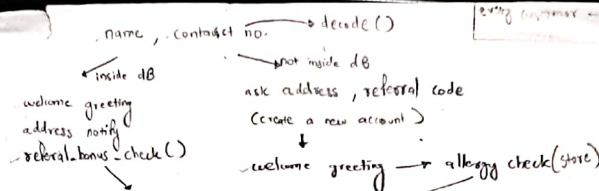 name, contact no. → decode()
inside dB
not inside dB
welcome greeting
address notify
referal_bonus_check()
ask address, referral code
(create a new account)
welcome greeting → allergy check(store)